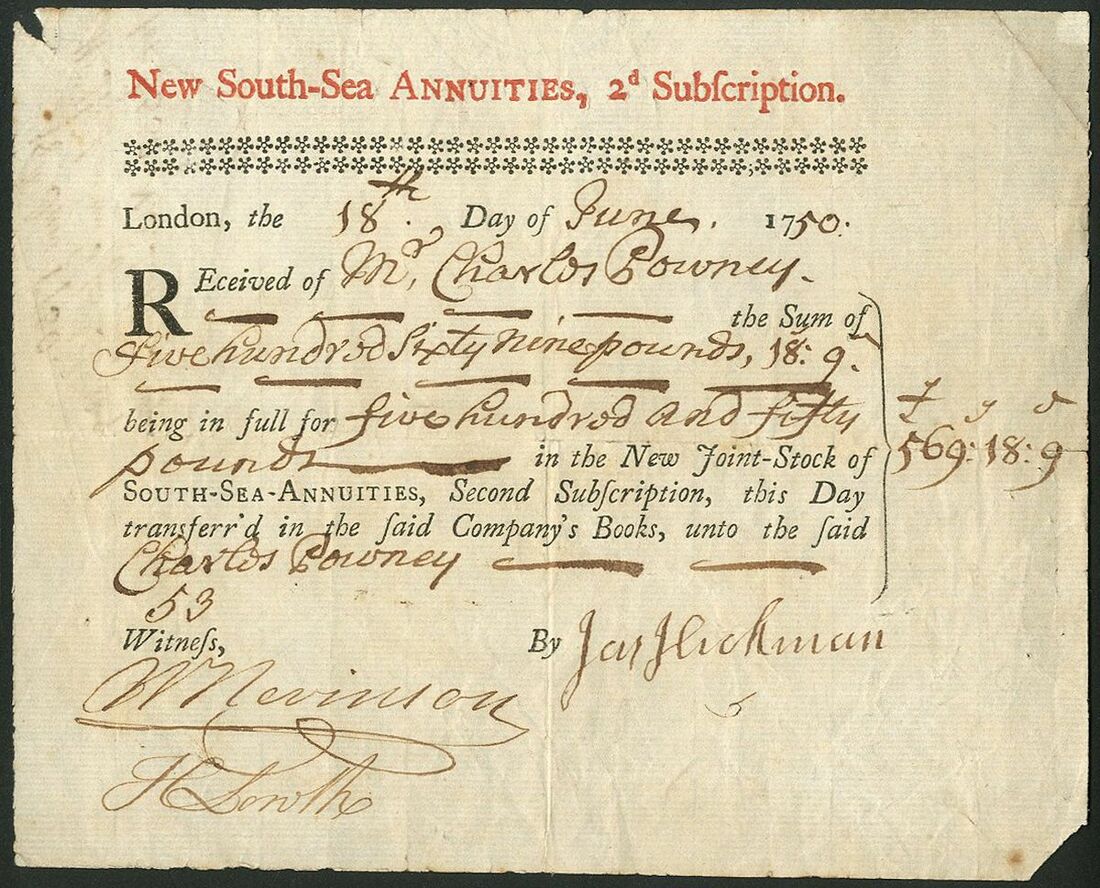 New South-Sea ANNUITIES, 2d Subſcription.
London, the 18th. Day of June. 1750.
REceived of Mr. Charles Powney.
the Sum of
five hundred Sixty nine pounds, 18: 9.
being in full for five hundred and fifty
pounds in the New Joint-Stock of
SOUTH-SEA-ANNUITIES, Second Subſcription, this Day
transferr'd in the ſaid Company's Books, unto the ſaid
Charles Powney
£ s d
569: 18: 9
53
Witneſs, By Jas Hickman
W Nevinson
H Lowth